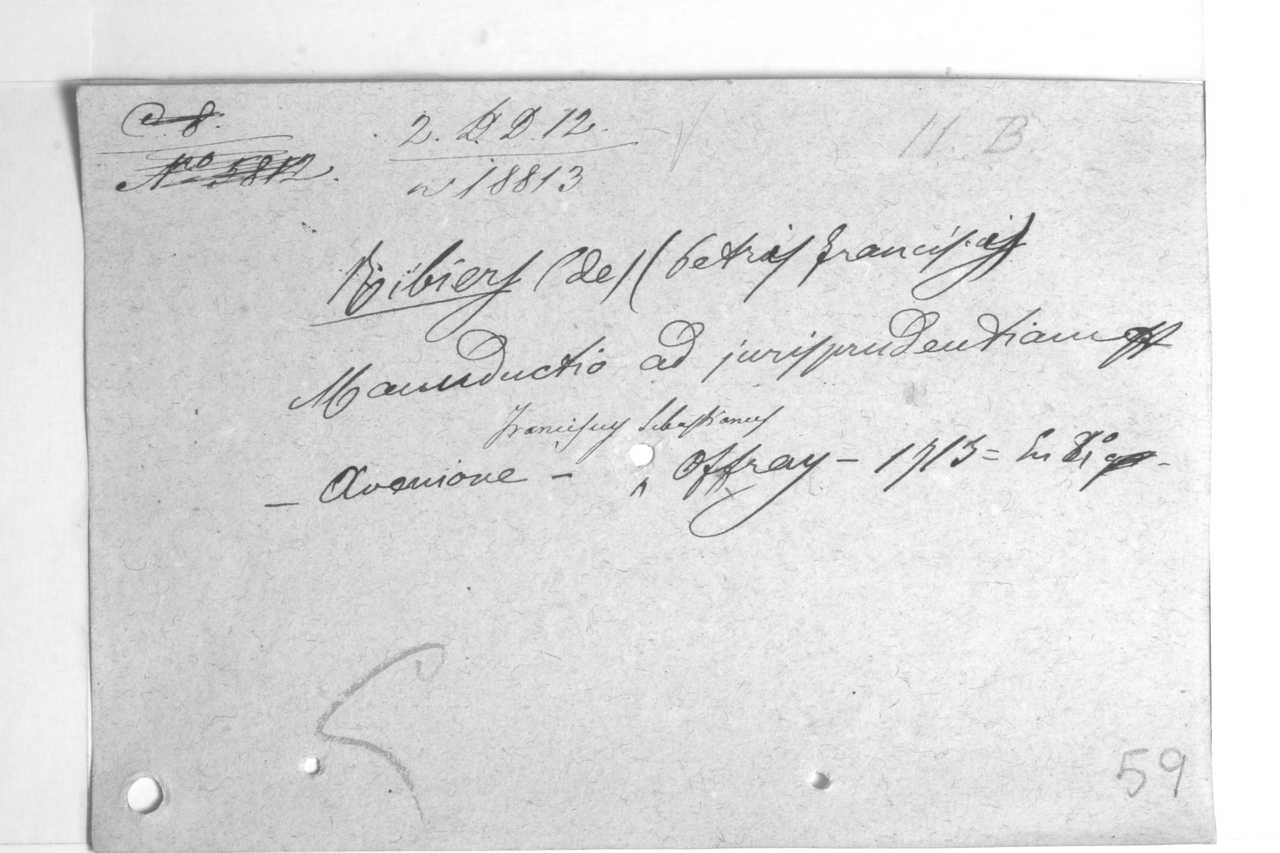 C. 8.
2. D. D. 12.
11. B.
Nro 5812.
nº 18813
Ribiers (de) (Petris Franciscis)
Manuductio ad jurisprudentiam
Franciscus Sebastianus
– Avenione – Offray – 1713 = En 8º
59